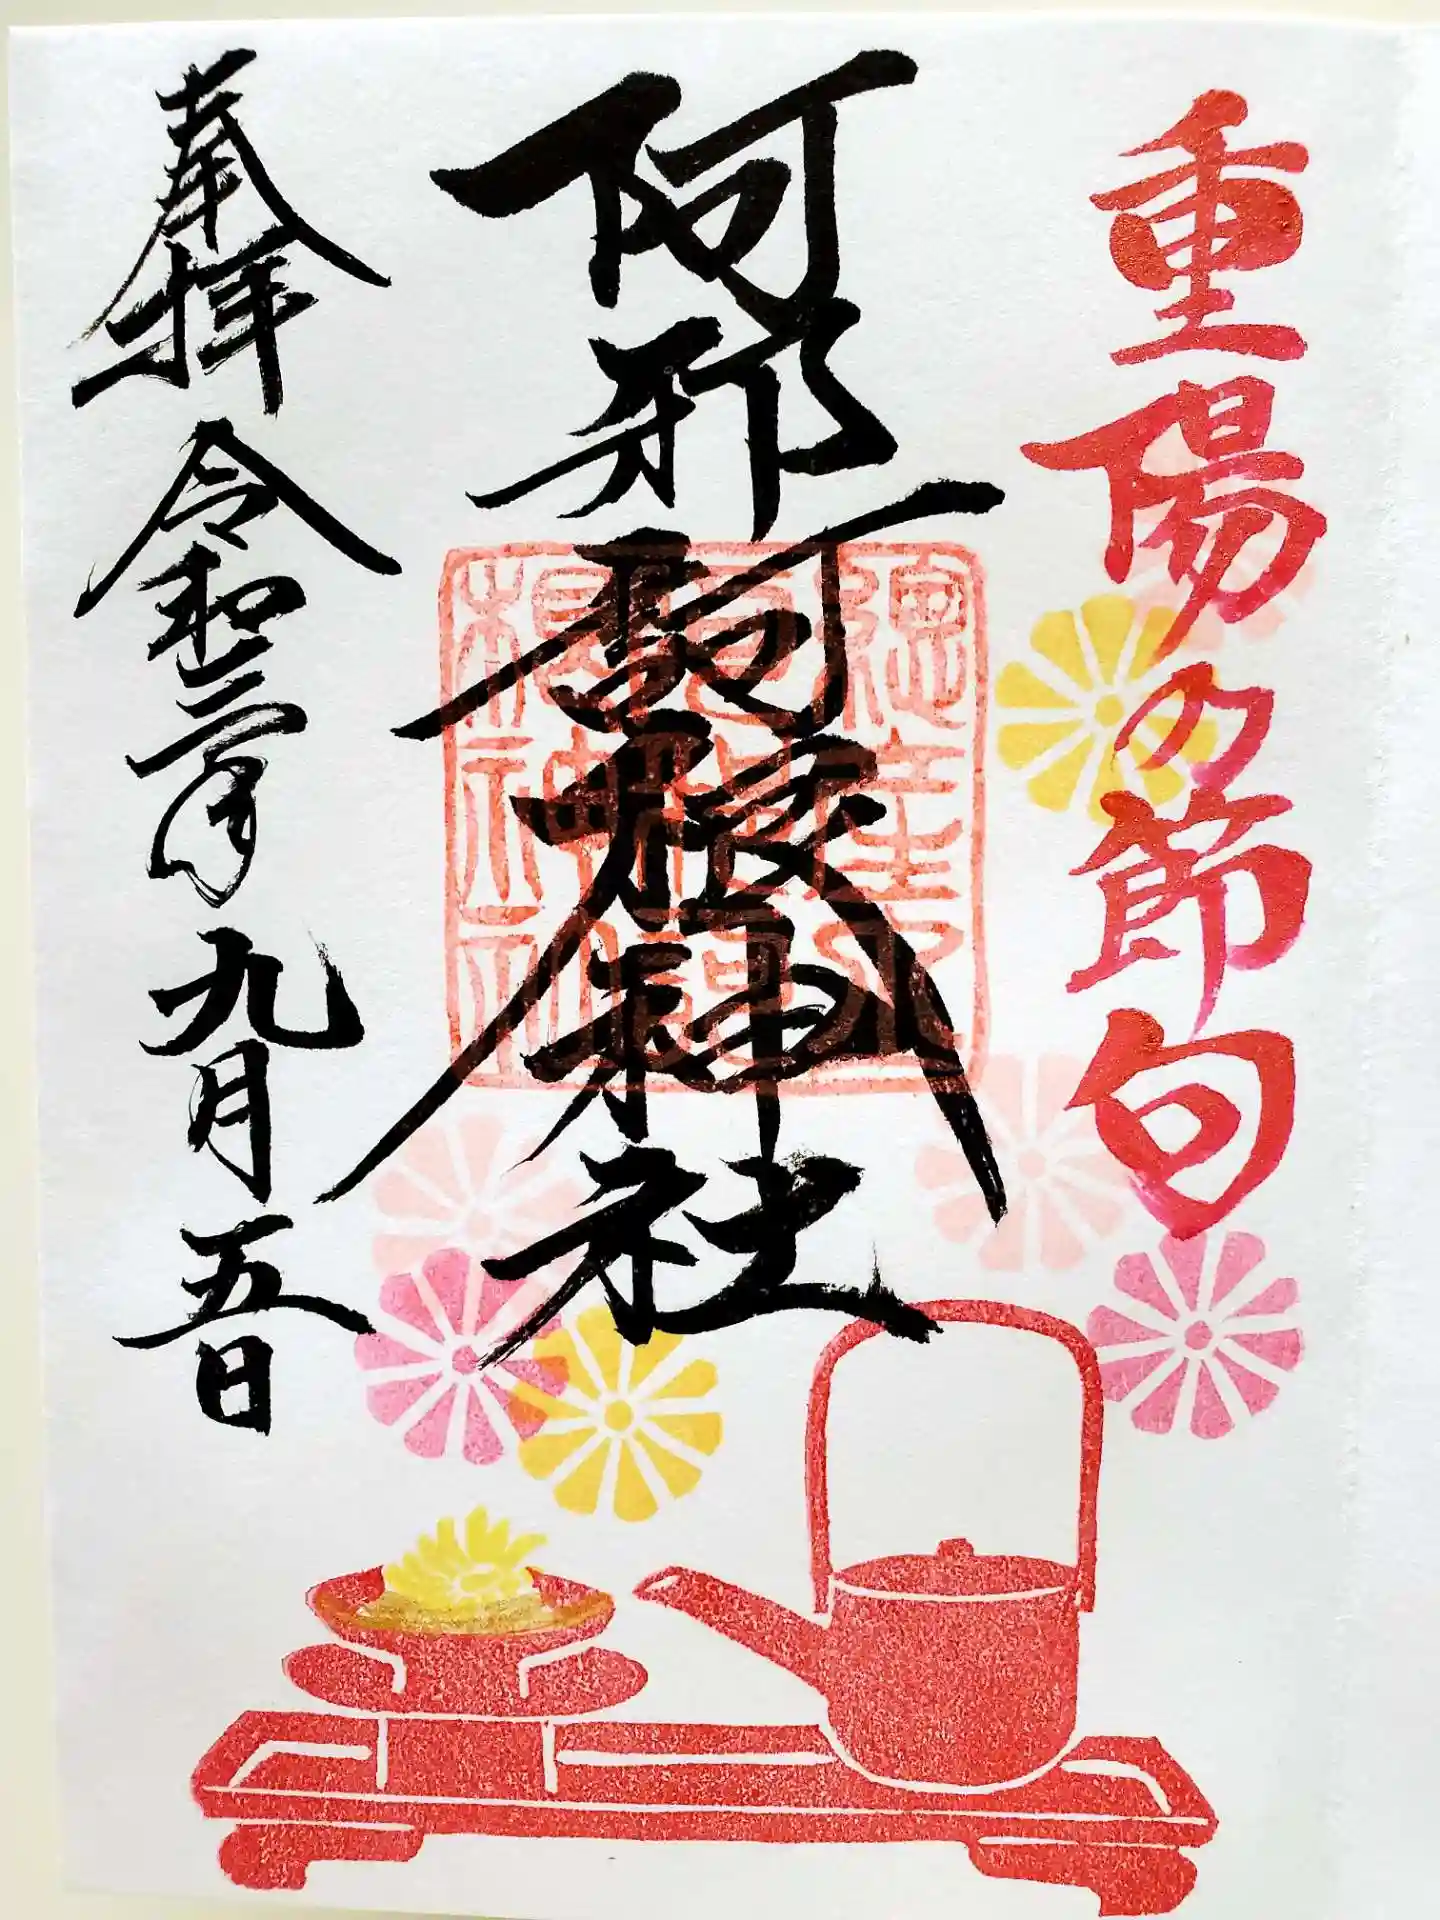 重陽の節句
阿邪訶根神社
奉拝 令和二年九月五日